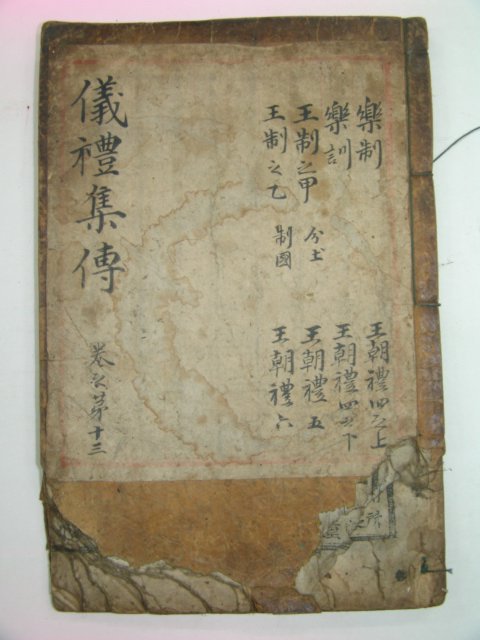 儀禮集傳
卷之第十三
樂制
樂訓
王制之甲 分土
王制之乙 制國
王朝禮四之上
王朝禮四之下
王朝禮五
王朝禮六